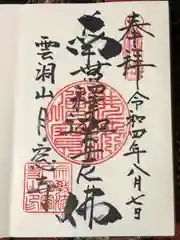 奉拝
令和四年八月七日
南無釋迦牟尼佛
雲洞山月窓寺